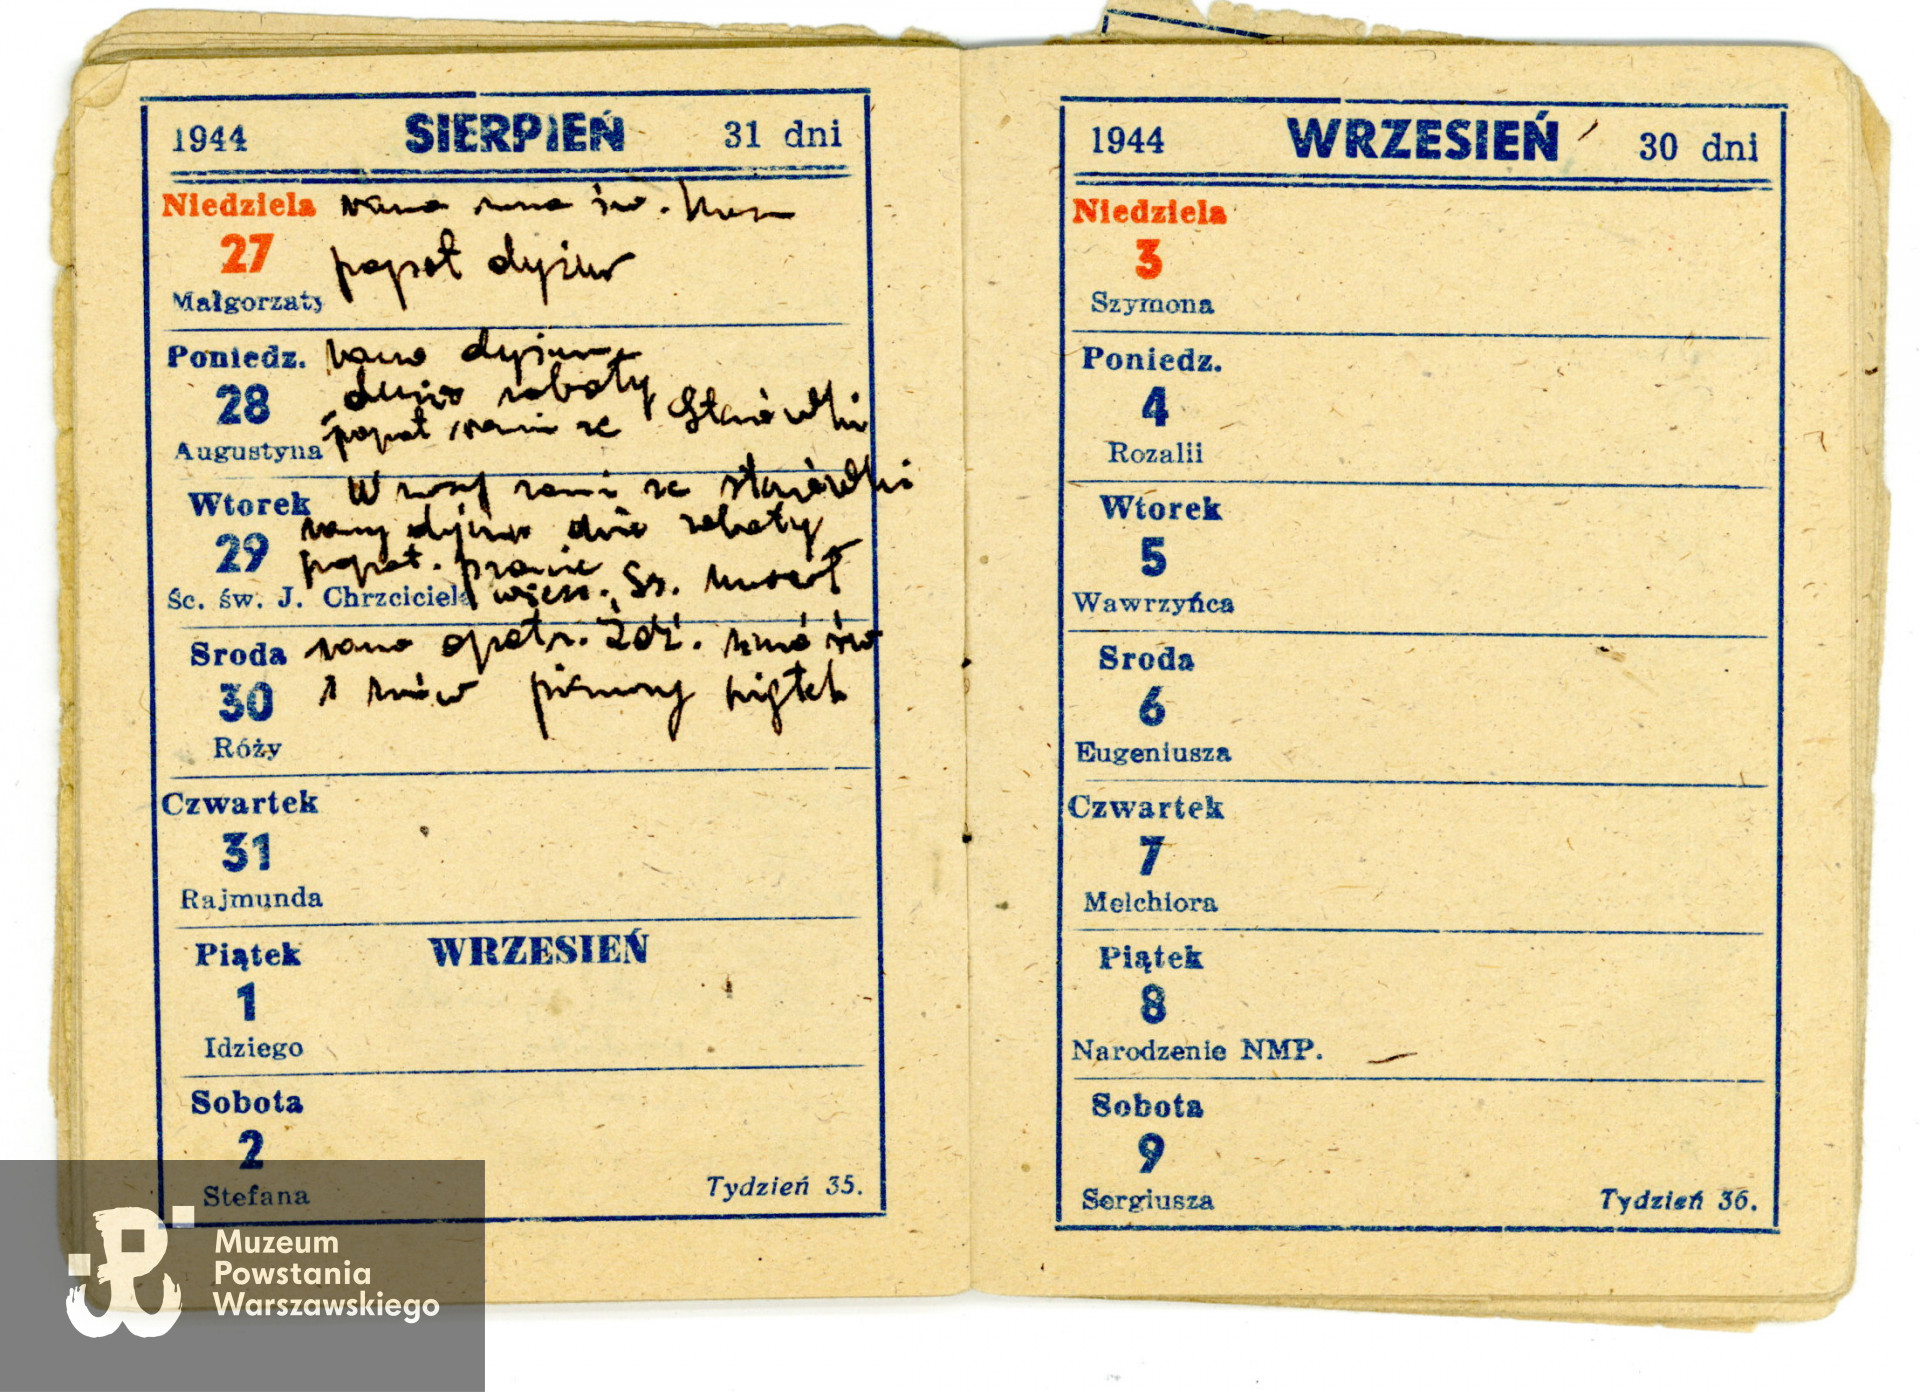 1944 SIERPIEŃ 31 dni
Niedziela rano msza św.
27 popoł dyżur
Małgorzaty
Poniedz. rano dyżur
dużo roboty
28 popoł ranni ze Starówki
Augustyna
Wtorek W nocy ranni ze starówki
rano dyżur dużo roboty
29 popoł. pranie
Śc. św. J. Chrzciciela wiecz.
Sroda rano opatr. msza św
30 i znów pierwszy piątek
Róży
Czwartek
31
Rajmunda
Piątek WRZESIEŃ
1
Idziego
Sobota
2
Stefana Tydzień 35.
1944 WRZESIEŃ 30 dni
Niedziela
3
Szymona
Poniedz.
4
Rozalii
Wtorek
5
Wawrzyńca
Sroda
6
Eugeniusza
Czwartek
7
Melchiora
Piątek
8
Narodzenie NMP.
Sobota
9
Sergiusza Tydzień 36.
Muzeum
Powstania
Warszawskiego